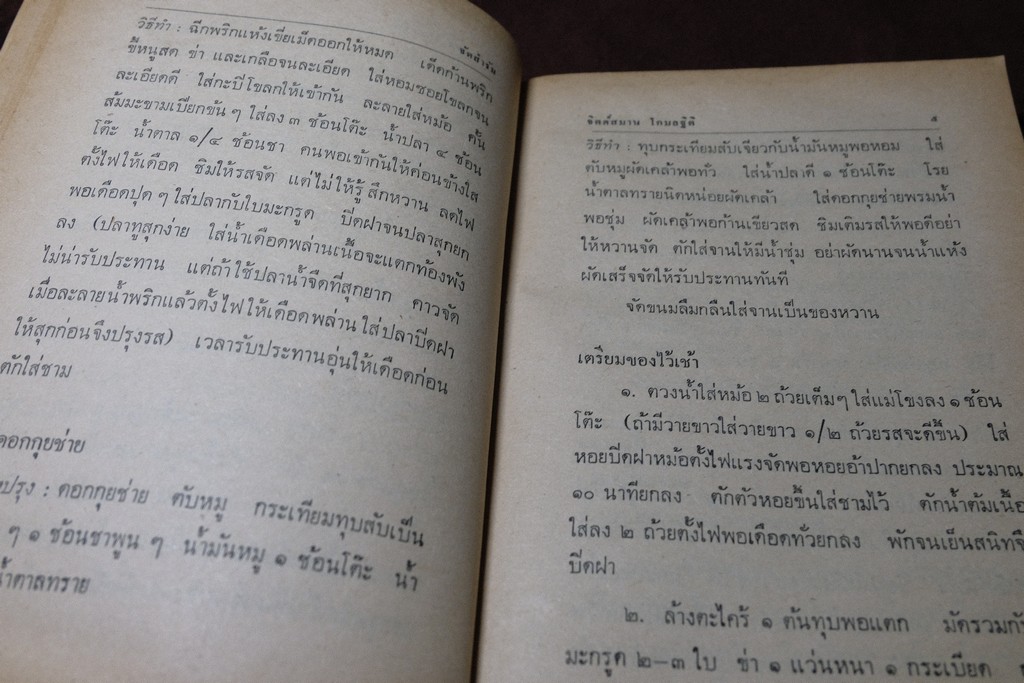 จัดสำรับ
วิธีทำ : ฉีกพริกแห้งเขี่ยเม็ดออกให้หมด เด็ดก้านพริก
ขี้หนูสด ข่า และเกลือจนละเอียด ใส่หอมซอยโขลกจน
ละเอียดดี ใส่กะปิโขลกให้เข้ากัน ละลายใส่หม้อ คั้น
ส้มมะขามเปียกข้น ๆ ใส่ลง ๓ ช้อนโต๊ะ น้ำปลา ๔ ช้อน
โต๊ะ น้ำตาล ๑/๔ ช้อนชา คนพอเข้ากันให้ค่อนข้างใส
ตั้งไฟให้เดือด ชิมให้รสจัด แต่ไม่ให้รู้สึกหวาน ลดไฟ
พอเดือดปุด ๆ ใส่ปลากับใบมะกรูด ปิดฝาจนปลาสุกยก
ลง (ปลาทูสุกง่าย ใส่น้ำเดือดพล่านเนื้อจะแตกท้องพัง
ไม่น่ารับประทาน แต่ถ้าใช้ปลาน้ำจืดที่สุกยาก คาวจัด
เมื่อละลายน้ำพริกแล้วตั้งไฟให้เดือดพล่านใส่ปลาปิดฝา
ให้สุกก่อนจึงปรุงรส) เวลารับประทานอุ่นให้เดือดก่อน
ตักใส่ชาม
ดอกกุยช่าย
ปรุง : ดอกกุยช่าย ตับหมู กระเทียมทุบสับเป็น
ๆ ๑ ช้อนชาพูน ๆ น้ำมันหมู ๑ ช้อนโต๊ะ น้ำ
น้ำตาลทราย
จิตต์สมาน โกมลฐิติ ๕
วิธีทำ : ทุบกระเทียมสับเจียวกับน้ำมันหมูพอหอม ใส่
ตับหมูผัดเคล้าพอทั่ว ใส่น้ำปลาดี ๑ ช้อนโต๊ะ โรย
น้ำตาลทรายนิดหน่อยผัดเคล้า ใส่ดอกกุยช่ายพรมน้ำ
พอชุ่ม ผัดเคล้าพอก้านเขียวสด ชิมเติมรสให้พอดีอย่า
ให้หวานจัด ตักใส่จานให้มีน้ำชุ่ม อย่าผัดนานจนน้ำแห้ง
ผัดเสร็จจัดให้รับประทานทันที
จัดขนมลืมกลืนใส่จานเป็นของหวาน
เตรียมของไว้เช้า
๑. ตวงน้ำใส่หม้อ ๒ ถ้วยเต็มๆ ใส่แม่โขงลง ๑ ช้อน
โต๊ะ (ถ้ามีวายขาวใส่วายขาว ๑/๒ ถ้วยรสจะดีขึ้น) ใส่
หอยปิดฝาหม้อตั้งไฟแรงจัดพอหอยอ้าปากยกลง ประมาณ
๑๐ นาทียกลง ตักตัวหอยขึ้นใส่ชามไว้ ตักน้ำต้มเนื้อ
ใส่ลง ๒ ถ้วยตั้งไฟพอเดือดทั่วยกลง พักจนเย็นสนิท
ปิดฝา
๒. ล้างตะไคร้ ๑ ต้นทุบพอแตก มัดรวมกับ
มะกรูด ๒-๓ ใบ ข่า ๑ แว่นหนา ๑ กระเบียด